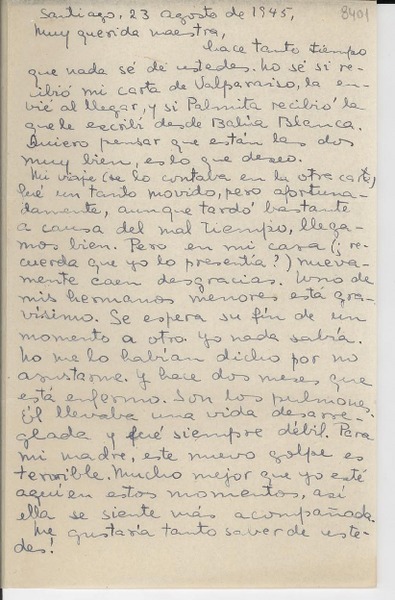 Santiago, 23 agosto de 1945,
8401
Muy querida maestra,
hace tanto tiempo
que nada sé de ustedes. No sé si re-
cibió mi carta de Valparaiso, la en-
vié al llegar, y si Palmita recibió la
que le escribí desde Bahía Blanca.
Quiero pensar que están las dos
muy bien, es lo que deseo.
Mi viaje (se lo contaba en la otra carta)
fué un tanto movido, pero afortuna-
damente, aunque tardó bastante
a causa del mal tiempo, llega-
mos bien. Pero en mi casa (¿re-
cuerda que yo lo presentía?) nueva-
mente caen desgracias. Uno de
mis hermanos menores está gra-
vísimo. Se espera su fin de un
momento a otro. Yo nada sabía.
No me lo habían dicho por no
asustarme. Y hace dos meses que
está enfermo. Son los pulmones.
Él llevaba una vida desarre-
glada y fué siempre débil. Para
mi madre, este nuevo golpe es
terrible. Mucho mejor que yo esté
aquí en estos momentos, así
ella se siente más acompañada.
Me gustaría tanto saver de uste-
des!